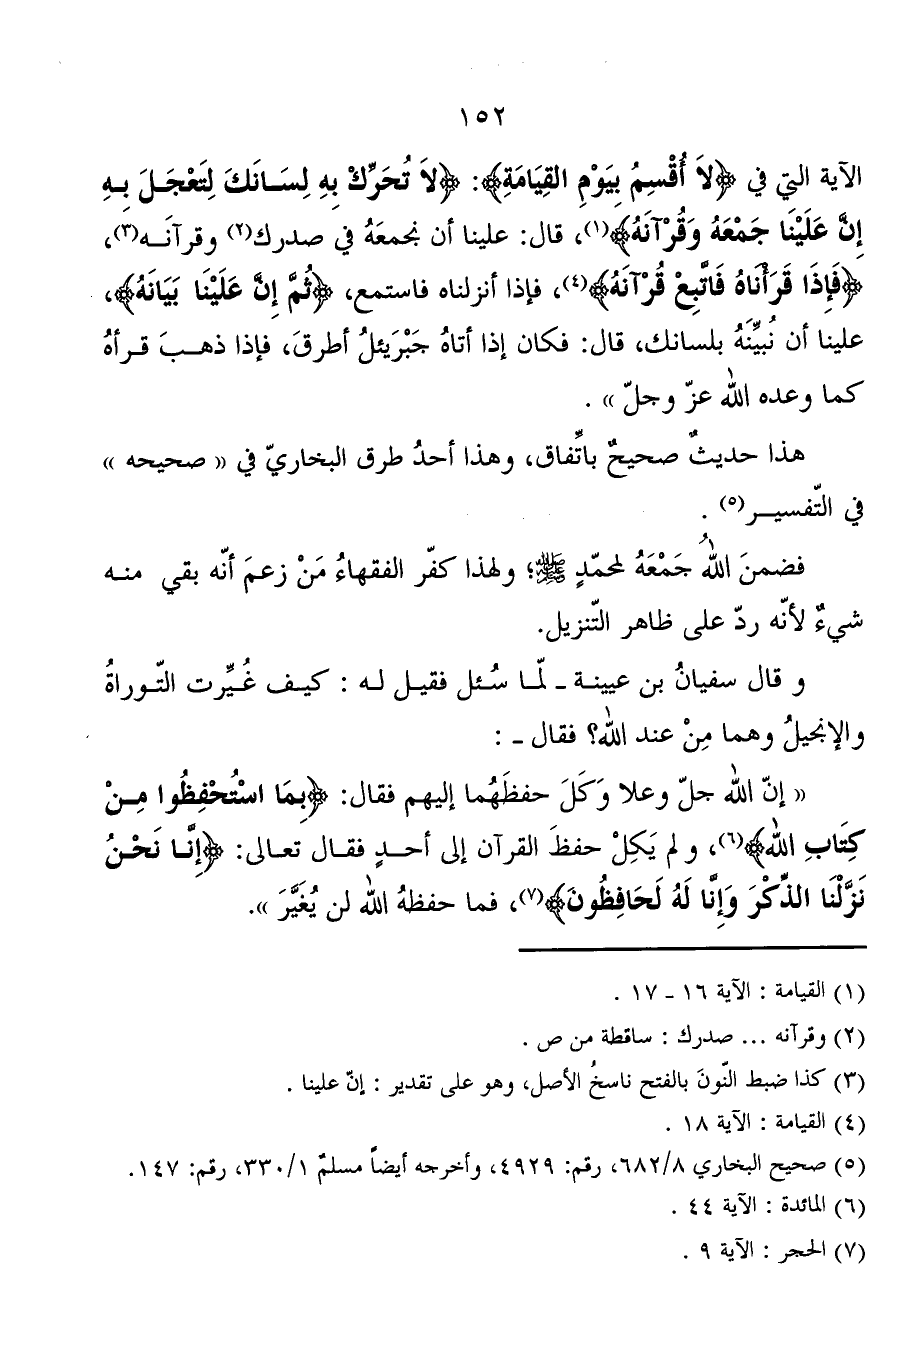 ١٥٢
الآية التي في ﴿لاَ أُقْسِمُ بِيَوْمِ القِيَامَةِ﴾: ﴿لاَ تُحَرِّكْ بِهِ لِسَانَكَ لِتَعْجَلَ بِهِ
إِنَّ عَلَيْنَا جَمْعَهُ وَقُرْآنَهُ﴾(١)، قال: علينا أن نجمعَهُ في صدرك(٢) وقرآنَه(٣)،
﴿فَإِذَا قَرَأْنَاهُ فَاتَّبِعْ قُرْآنَهُ﴾(٤)، فإذا أنزلناه فاستمع، ﴿ثُمَّ إِنَّ عَلَيْنَا بَيَانَهُ﴾،
علينا أن نُبيِّنَهُ بلسانك، قال: فكان إذا أتاهُ جَبْرَيئلُ أطرقَ، فإذا ذهبَ قرأهُ
كما وعده اللهُ عزّ وجلّ » .
هذا حديثٌ صحيحٌ باتِّفاق، وهذا أحدُ طرق البخاريّ في « صحيحه »
في التّفسير(٥) .
فضمنَ اللهُ جَمْعَهُ لمحمّدٍ ﷺ؛ ولهذا كفّر الفقهاءُ مَنْ زعمَ أنّه بقي منه
شيءٌ لأنّه ردّ على ظاهر التّنزيل.
و قال سفيانُ بن عيينة ـ لمّا سُئل فقيل له : كيف غُيِّرت التّوراةُ
والإنجيلُ وهما مِنْ عند الله؟ فقال ـ :
« إنّ الله جلّ وعلا وَكَلَ حفظَهُما إليهم فقال: ﴿بِمَا اسْتُحْفِظُوا مِنْ
كِتَابِ اللهِ﴾(٦)، و لم يَكِلْ حفظَ القرآن إلى أحدٍ فقال تعالى: ﴿إِنَّا نَحْنُ
نَزَّلْنَا الذِّكْرَ وَإِنَّا لَهُ لَحَافِظُونَ﴾(٧)، فما حفظهُ اللهُ لن يُغَيَّرَ ».
(١) القيامة : الآية ١٦ ـ ١٧ .
(٢) وقرآنه ... صدرك : ساقطة من ص .
(٣) كذا ضبط النّونَ بالفتح ناسخُ الأصل، وهو على تقدير : إنّ علينا .
(٤) القيامة : الآية ١٨ .
(٥) صحيح البخاري ٦٨٢/٨، رقم: ٤٩٢٩، وأخرجه أيضاً مسلمٌ ٣٣٠/١، رقم: ١٤٧.
(٦) المائدة : الآية ٤٤ .
(٧) الحجر : الآية ٩ .